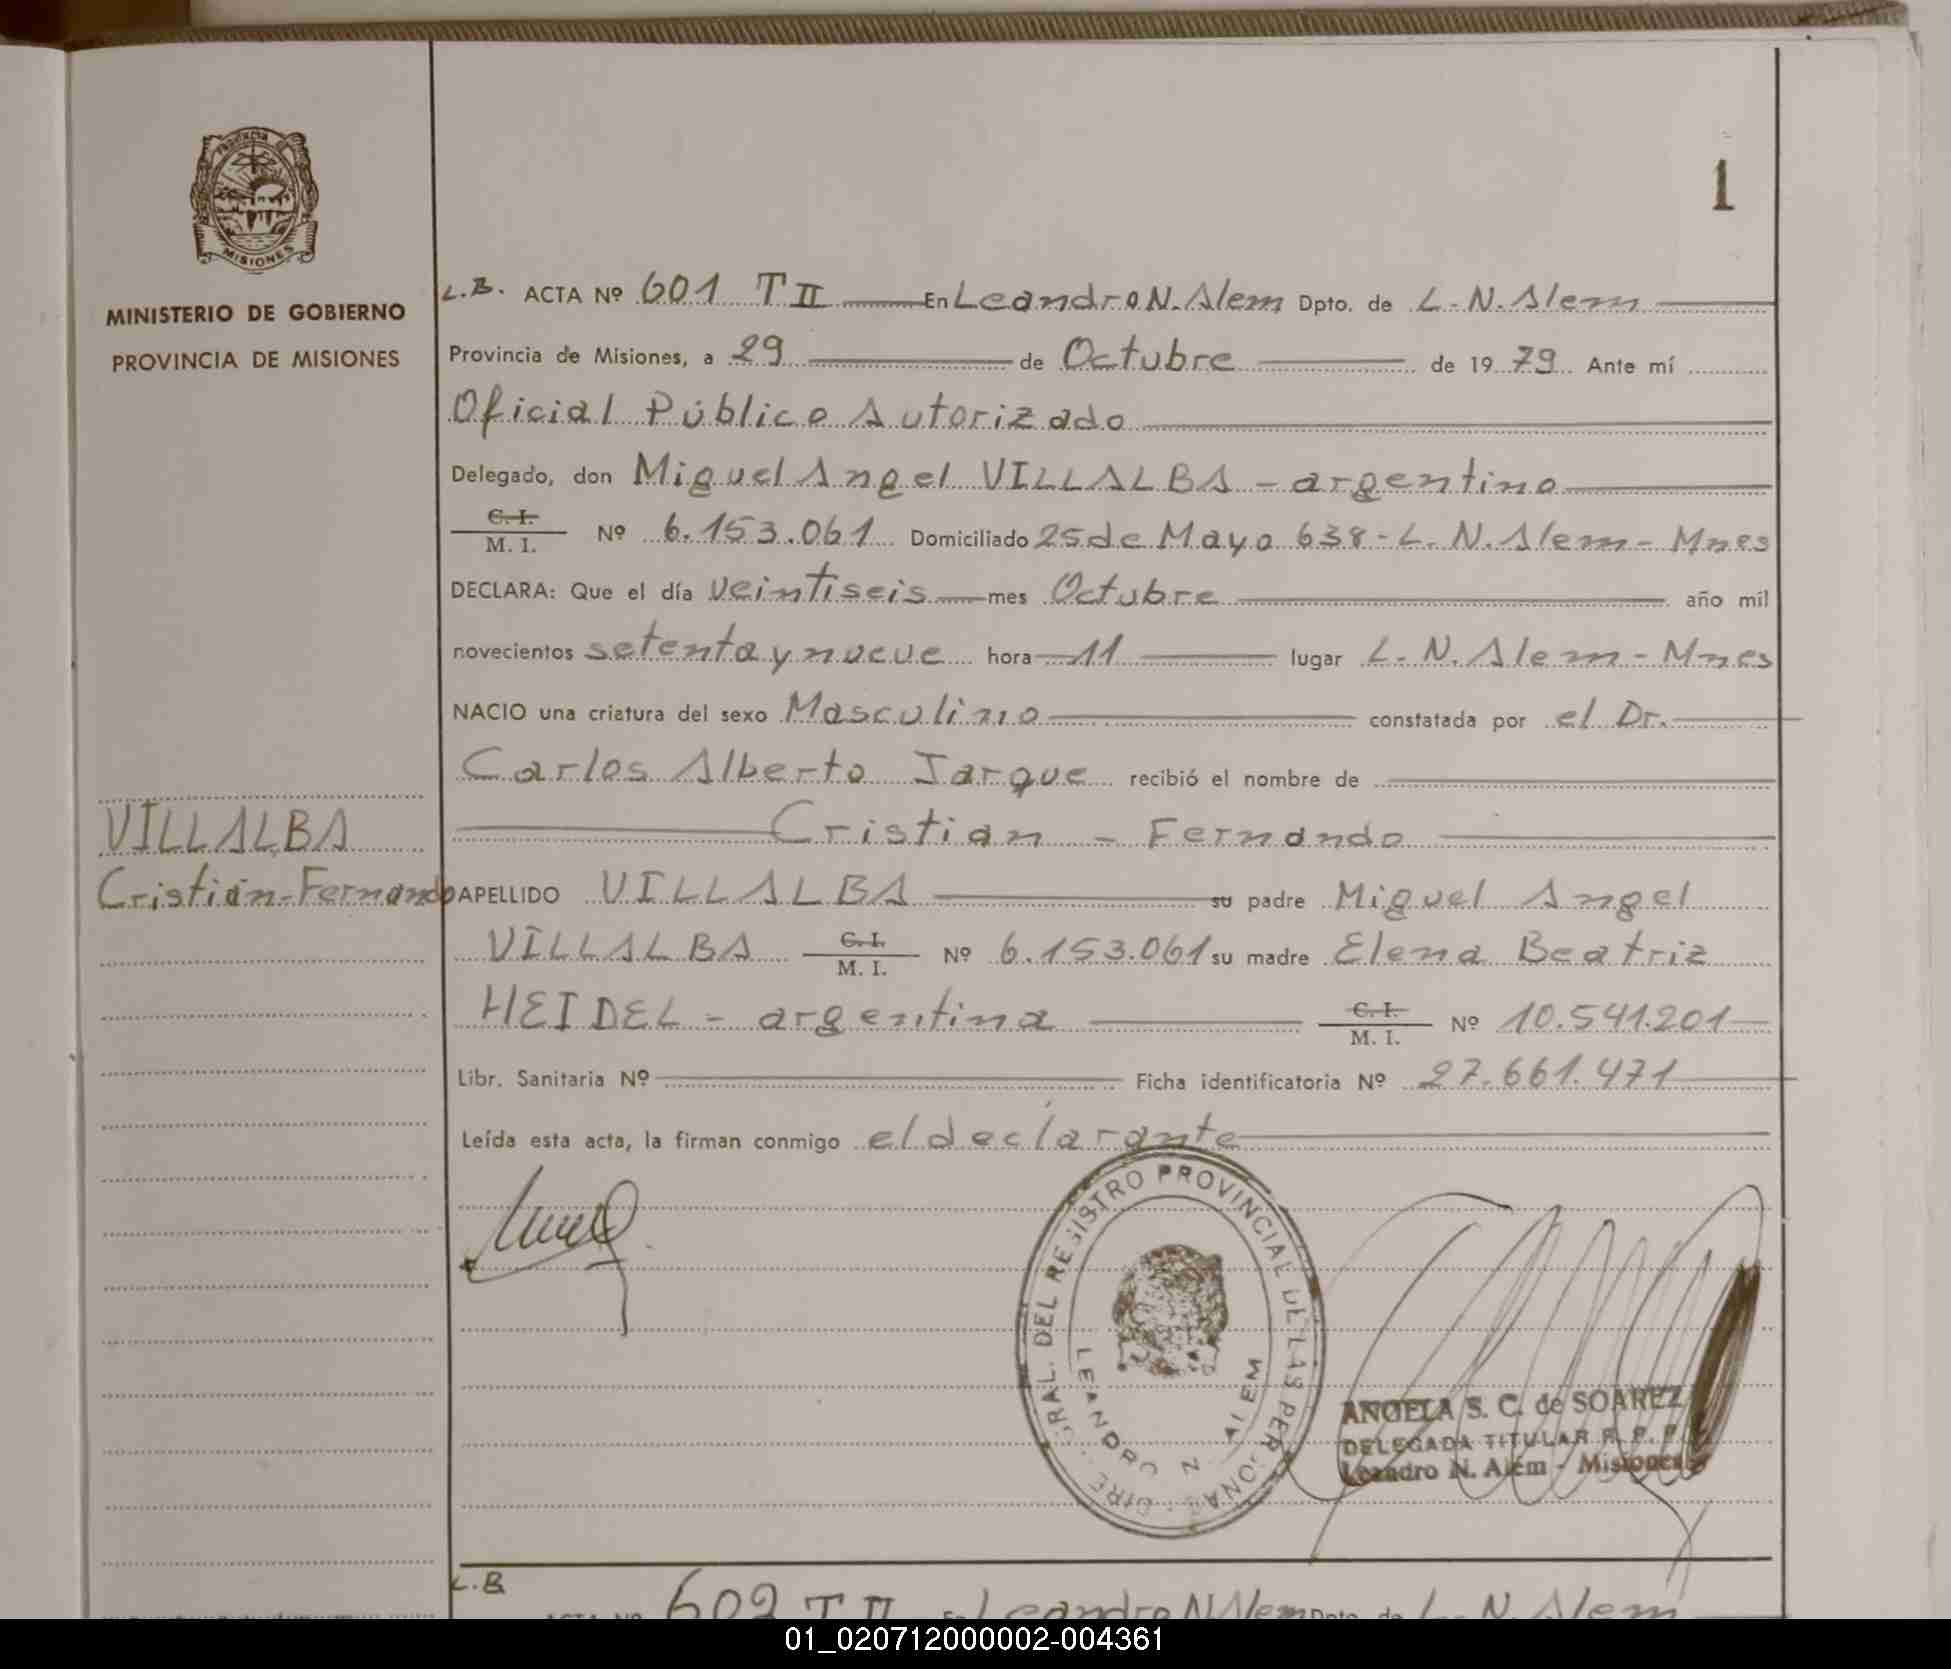 PROVINCIA DE
MISIONES
MINISTERIO DE GOBIERNO
PROVINCIA DE MISIONES
1
L.B. ACTA Nº 601 T II En Leandro N. Alem Dpto. de L. N. Alem
Provincia de Misiones, a 29 de Octubre de 1979. Ante mí
Oficial Público Autorizado
Delegado, don Miguel Angel VILLALBA - argentino
C. I.
M. I. Nº 6.153.061 Domiciliado 25 de Mayo 638 - L. N. Alem - Mnes
DECLARA: Que el día veintiseis mes Octubre año mil
novecientos setenta y nueve hora 11 lugar L. N. Alem - Mnes
NACIO una criatura del sexo Masculino constatada por el Dr.
Carlos Alberto Jarque recibió el nombre de
Cristian - Fernando
VILLALBA
Cristian-Fernando
APELLIDO VILLALBA su padre Miguel Angel
VILLALBA C. I. M. I. Nº 6.153.061 su madre Elena Beatriz
HEIDEL - argentina C. I. M. I. Nº 10.541.201
Libr. Sanitaria Nº Ficha identificatoria Nº 27.661.471
Leída esta acta, la firman conmigo el declarante
DIRE. GRAL. DEL REGISTRO PROVINCIAL DE LAS PERSONAS
LEANDRO N. ALEM
ANGELA S. C. de SOAREZ
DELEGADA TITULAR R. P. P.
Leandro N. Alem - Misiones
L.B
ACTA Nº 602 T II En Leandro N. Alem Dpto. de L. N. Alem
01_020712000002-004361